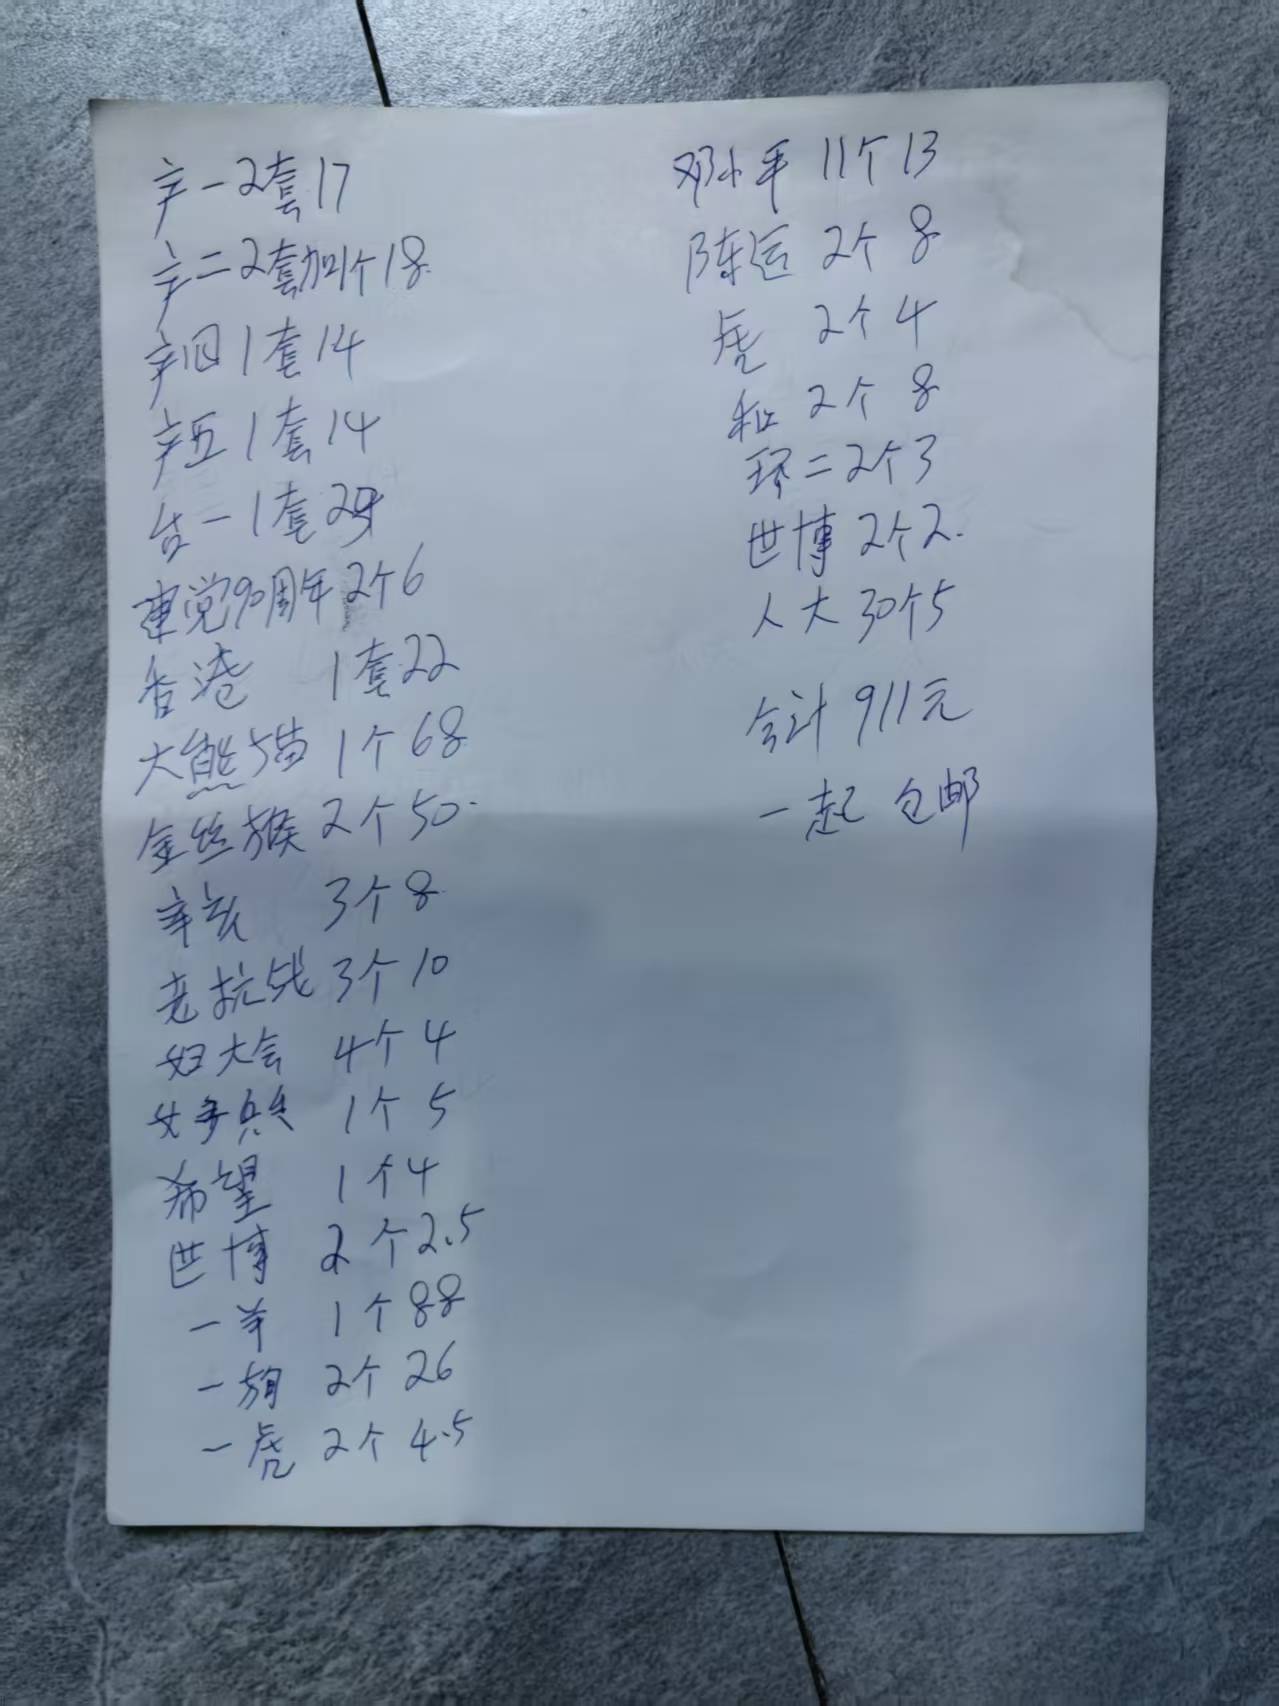 字一2套17
字二2套加1个18
字四1套14
字五1套14
台一1套
建党90周年2个6
香港 1套22
大熊猫 1个68
金丝猴 2个50
辛亥 3个8
老抗战 3个10
妇大会 4个4
1个 5
希望 1个4
世博 2个2.5
一羊 1个88
一狗 2个26
一虎 2个4.5
邓小平 11个13
陈运 2个 8
虎 2个4
和 2个 8
环二2个3
世博 2个2.
人大 30个5
合计 911元
一起 包邮